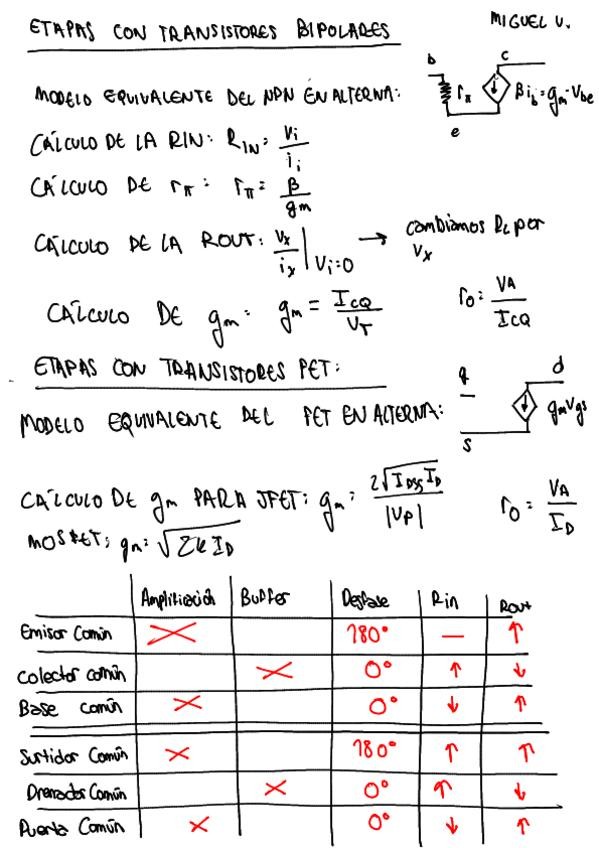 ETAPAS CON TRANSISTORES BIPOLARES
MIGUEL V.
MODELO EQUIVALENTE DEL NPN EN ALTERNA:
b c rπ βib=gm·Vbe
e
CÁLCULO DE LA RIN: RIN = Vi/ii
CÁLCULO DE rπ: rπ = β/gm
CÁLCULO DE LA ROUT: Vx/ix | Vi=0 → cambiamos RL por Vx
CÁLCULO DE gm: gm = ICQ/VT
ro = VA/ICQ
ETAPAS CON TRANSISTORES FET:
MODELO EQUIVALENTE DEL FET EN ALTERNA:
g d gmVgs
s
CÁLCULO DE gm PARA JFET: gm = 2√IDSS ID/|VP|
ro = VA/ID
MOSFET: gm = √2k ID
Amplificación Buffer Desfase Rin Rout
Emisor Común X 180° — ↑
Colector común X 0° ↑ ↓
Base común X 0° ↓ ↑
Surtidor Común X 180° ↑ ↑
Drenador Común X 0° ↑ ↓
Puerta Común X 0° ↓ ↑